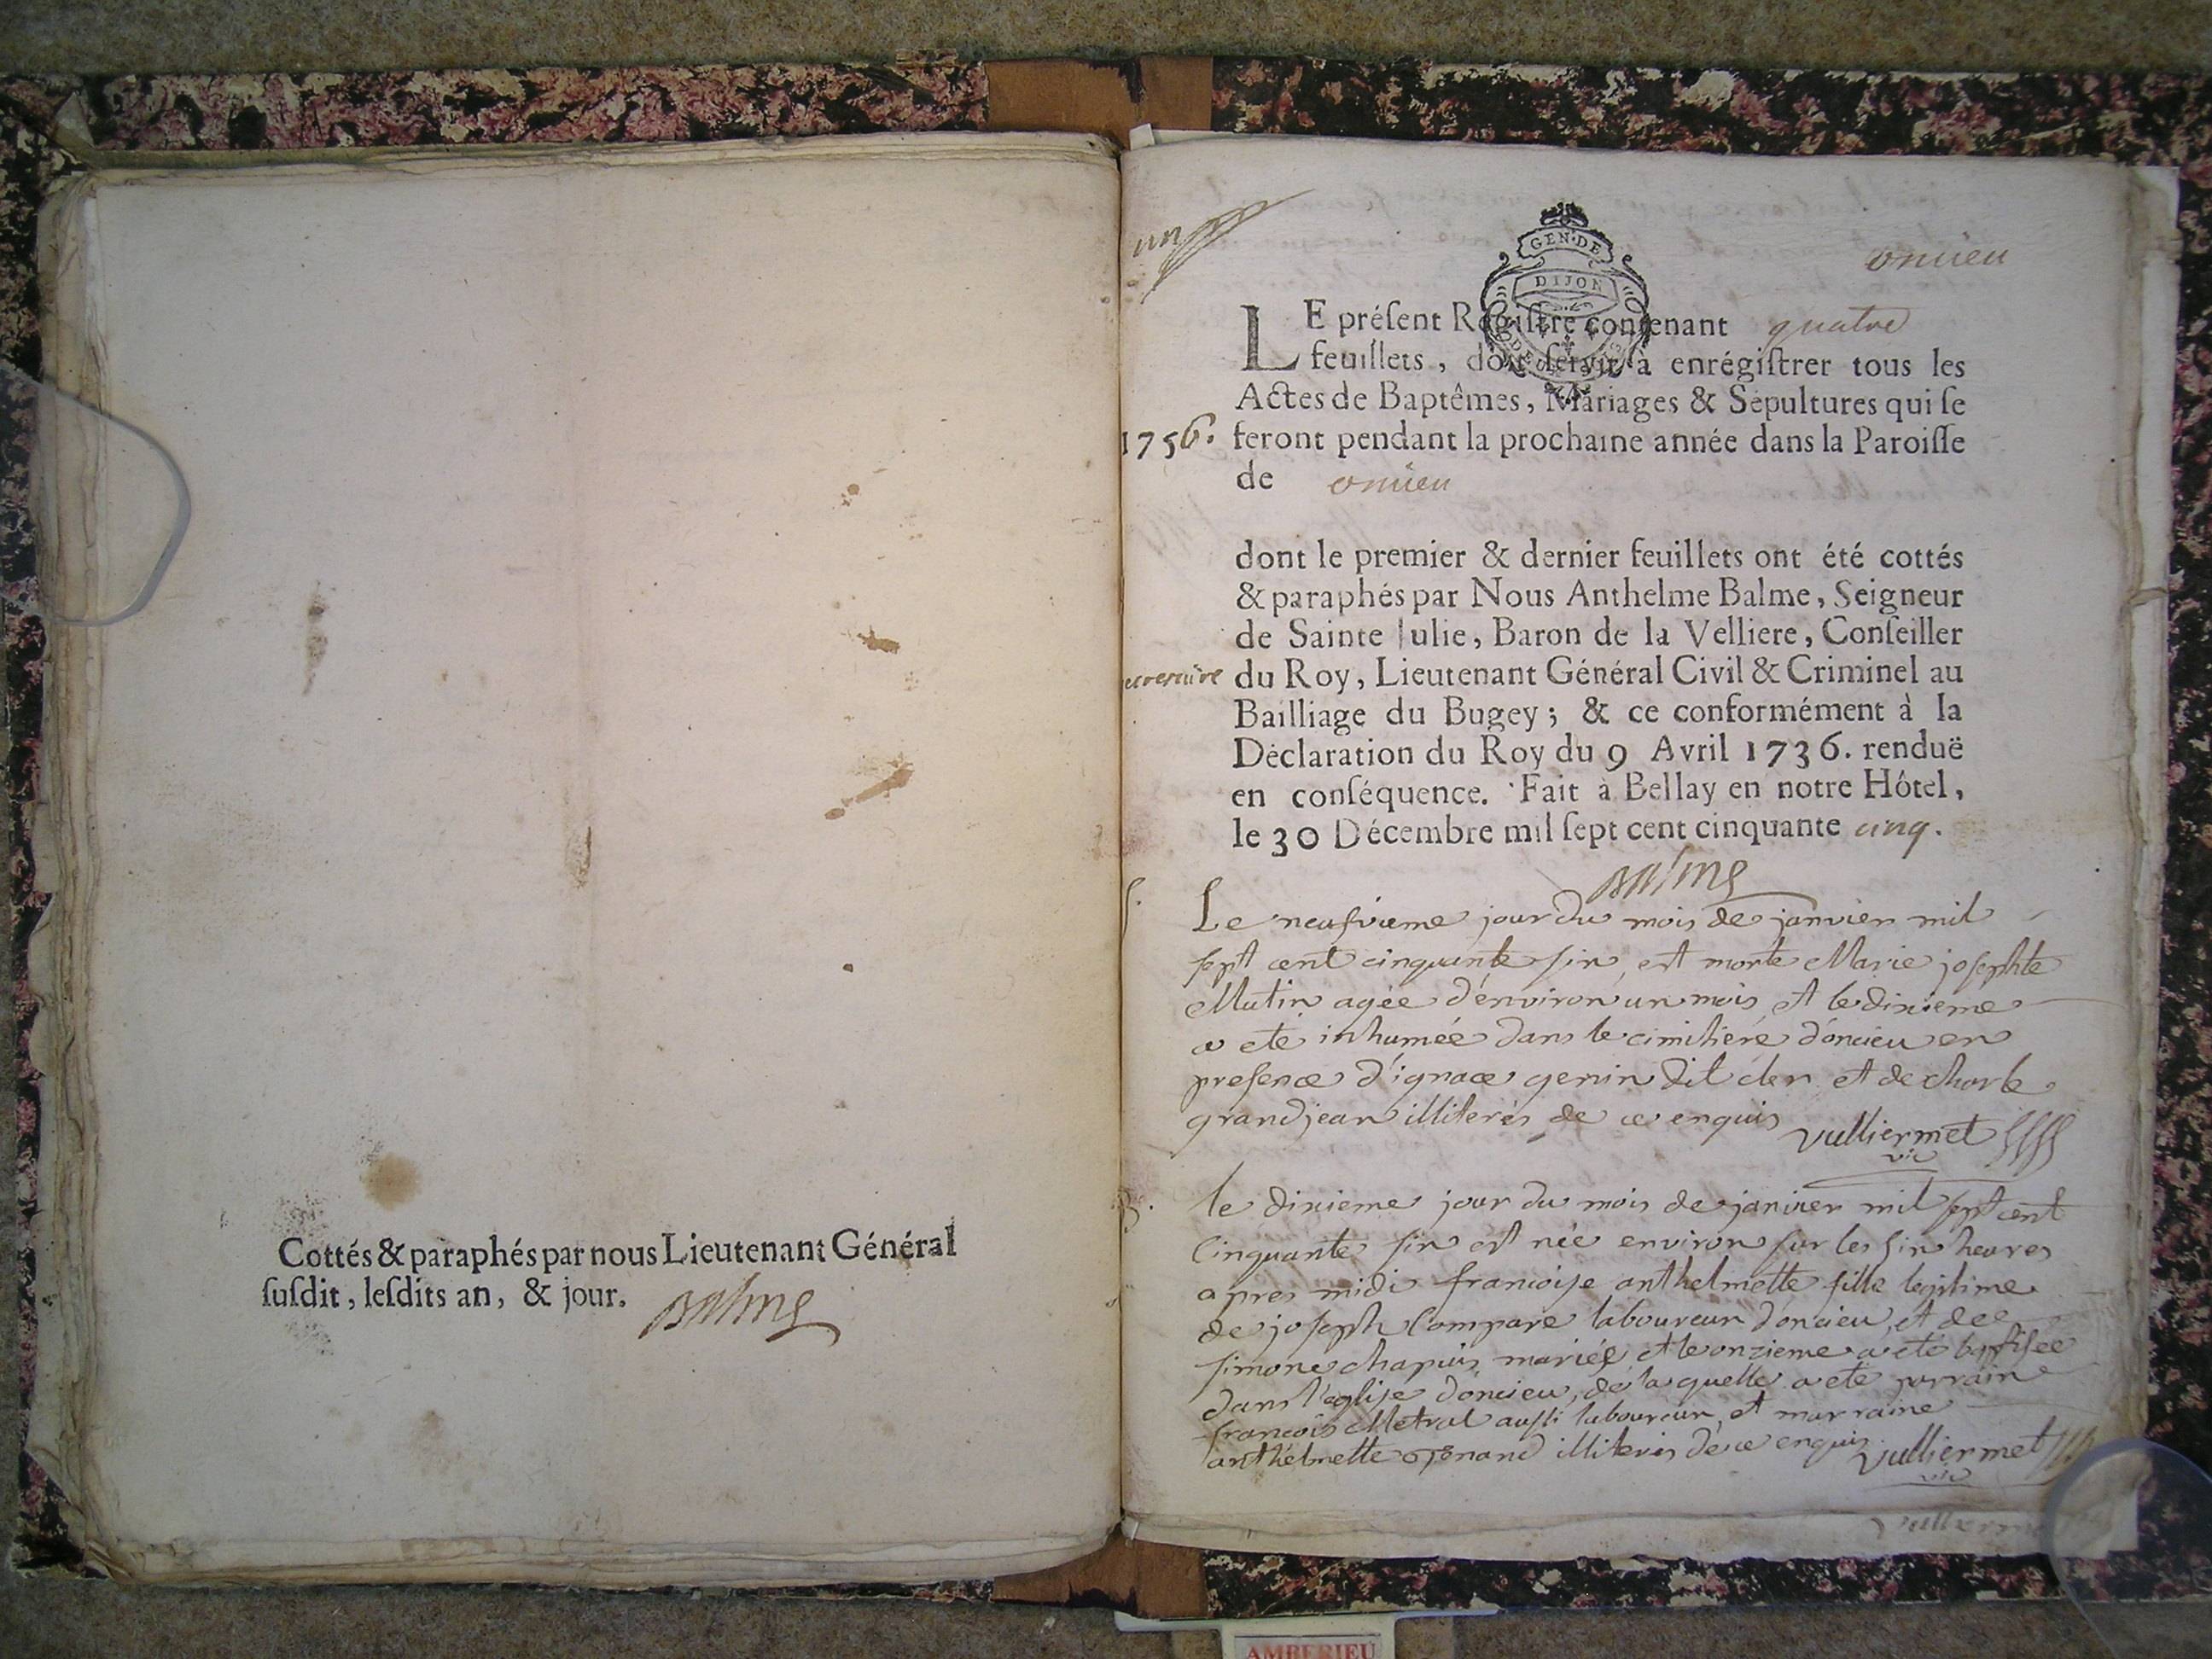 Cottés & paraphés par nous Lieutenant Général
ſuſdit, leſdits an, & jour. Balme
un
GEN·DE
DIJON
oncieu
LE préſent Regiſtre contenant quatre
feuillets, doit ſervir à enrégiſtrer tous les
Actes de Baptêmes, Mariages & Sépultures qui ſe
1756. feront pendant la prochaine année dans la Paroiſſe
de oncieu
dont le premier & dernier feuillets ont été cottés
& paraphés par Nous Anthelme Balme, Seigneur
de Sainte Julie, Baron de la Velliere, Conſeiller
du Roy, Lieutenant Général Civil & Criminel au
Bailliage du Bugey; & ce conformément à la
Déclaration du Roy du 9 Avril 1736. renduë
en conſéquence. Fait à Bellay en notre Hôtel,
le 30 Décembre mil ſept cent cinquante cinq.
Balme
S.
Le neufvieme jour du mois de janvier mil
sept cent cinquante six, est morte Marie josephte
Mutin agée d'environ un mois, et le dixieme
a eté inhumée dans le cimitiére d'oncieu en
presence d'ignace genin dit cler et de charle
grandjean illiterés de ce enquis Vulliermet
vic
B.
le dixieme jour du mois de janvier mil sept cent
Cinquante six est née environ sur les six heures
apres midi francoise anthelmette fille legitime
de joseph Compare laboureur d'oncieu, et de
simone chapuis mariés, et le onzieme a eté baptisée
dans l'eglise d'oncieu, de la quelle a eté parrain
francois Metral aussi laboureur, et marraine
anthelmette illiterés de ce enquis Vulliermet
vic
AMBERIEU